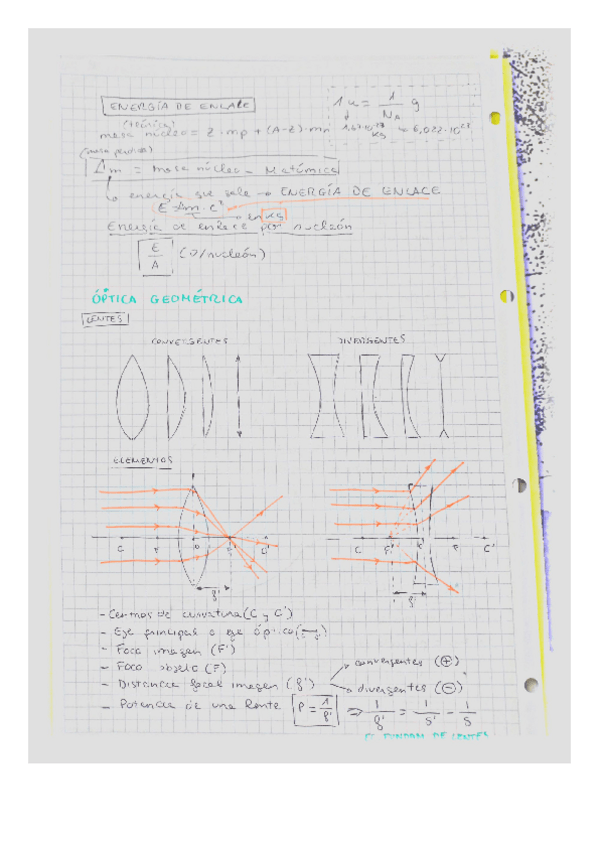 ENERGÍA DE ENLACE
1 u = 1/NA g
(teórica)
masa núcleo = Z · mp + (A-Z) · mn
1,67·10⁻²⁷ kg
6,022·10²³
(masa perdida)
Δm = masa núcleo - M atómica
energía que sale → ENERGÍA DE ENLACE
E = Δm · c²
en kg
Energía de enlace por nucleón
E/A (J/nucleón)
ÓPTICA GEOMÉTRICA
LENTES
CONVERGENTES DIVERGENTES
ELEMENTOS
C F O F' C'
C F' O F C'
f' f'
- Centros de curvatura (C y C')
- Eje principal o eje óptico
- Foco imagen (F')
- Foco objeto (F)
- Distancia focal imagen (f') convergentes (+)
divergentes (-)
- Potencia de una lente P = 1/f' ⇒ 1/f' = 1/s' - 1/s
FUNDAM DE LENTES